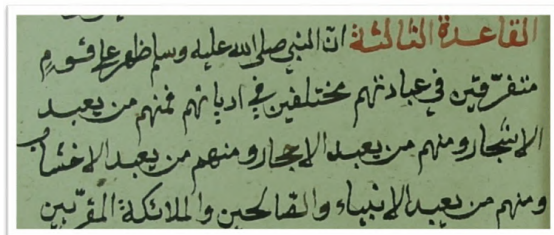 القاعدة الثالثة انّ النبي صلى الله عليه وسلم ظهر على قومٍ
متفرّقين في عبادتهم مختلفين في اديانهم فمنهم من يعبد
الاشجار ومنهم من يعبد الاحجار ومنهم من يعبد الاخشاب
ومنهم من يعبد الانبياء والصالحين والملائكة المقرّبين